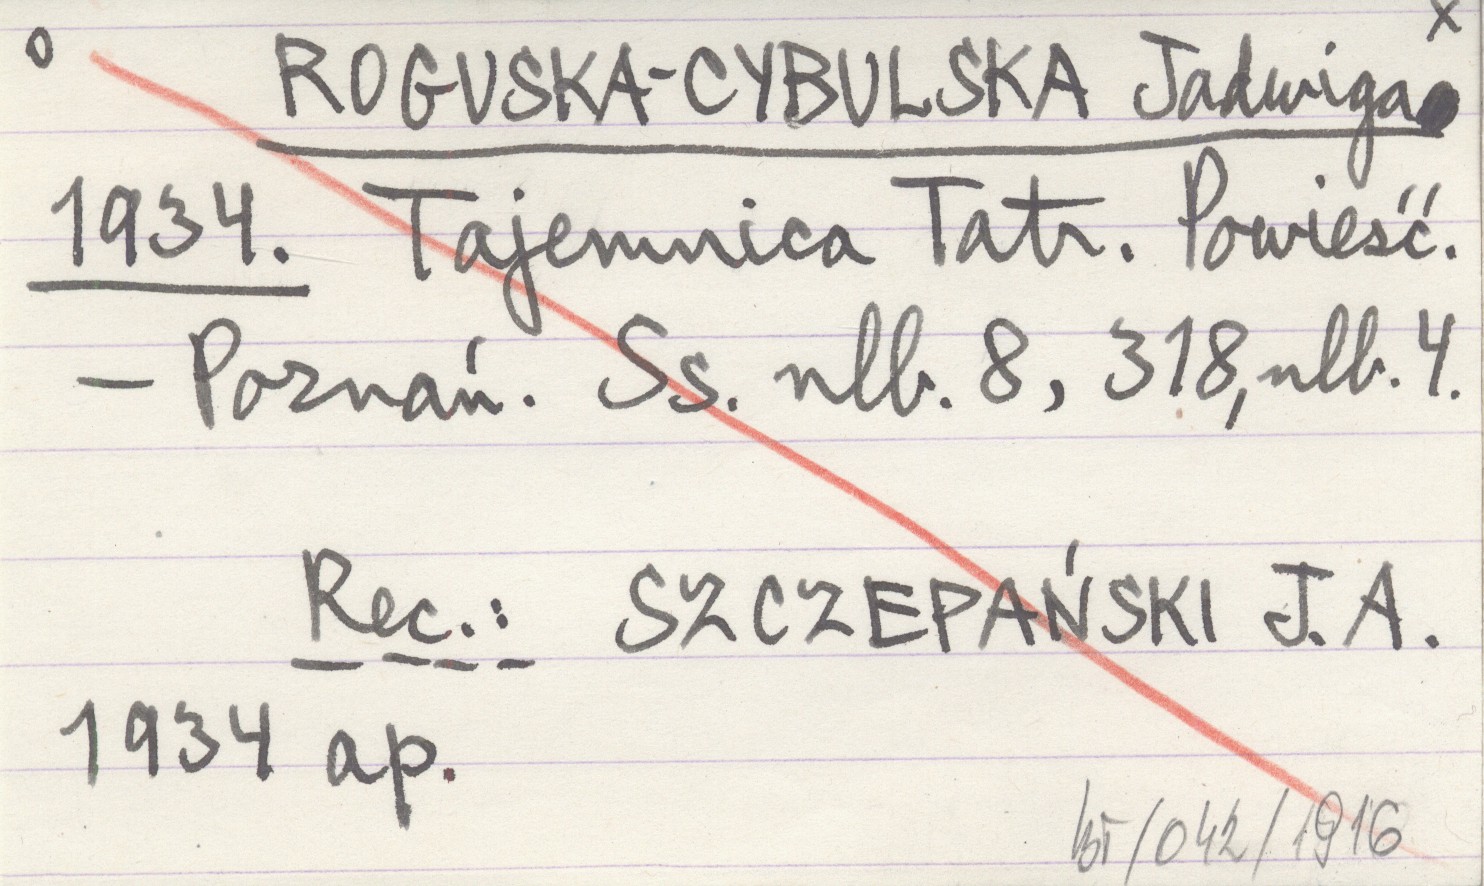 o x
ROGUSKA-CYBULSKA Jadwiga
1934. Tajemnica Tatr. Powieść.
– Poznań. Ss. nlb. 8, 318, nlb. 4.
Rec.: SZCZEPAŃSKI J. A.
1934 ap.
/042/1916